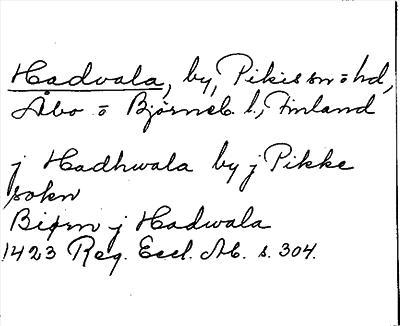 Hadvala, by, Pikis sn o hd,
Åbo o Björneb. l., Finland
j Hadhwala by j Pikke
sokn
Biørn j Hadwala
1423 Reg. Eccl. Ab. s. 304.